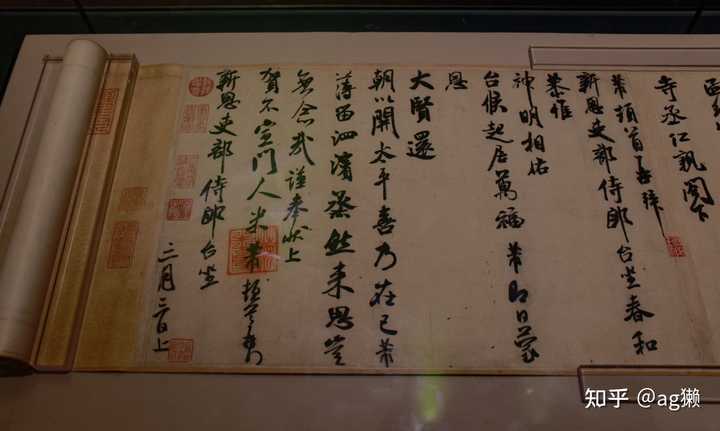 寺丞仁親閣下
芾頓首再拜
新恩吏部侍郎台坐春和
恭惟
神明相祐
台候起居萬福芾即日蒙
恩
大賢還
朝以開太平喜乃在己芾
薄留泗濱蒸然來思豈
無念哉謹奉狀上
賀不宣門人米芾頓首再拜
新恩吏部侍郎台坐
三月三日上
知乎 @ag獭